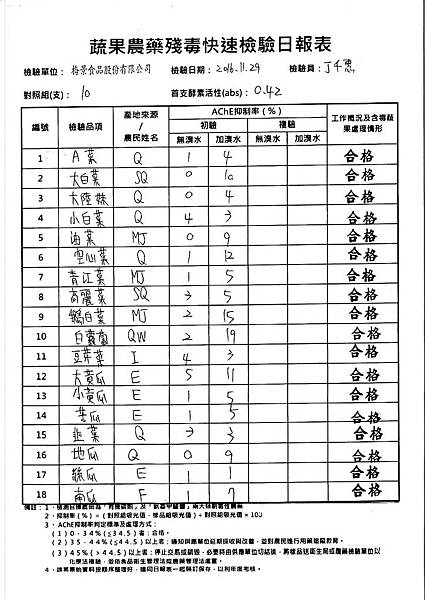 蔬果農藥殘毒快速檢驗日報表
檢驗單位： 裕景食品股份有限公司 檢驗日期： 2016.11.29 檢驗員： 丁千惠
對照組(支)： 10 首支酵素活性(abs)： 0.42
編號 檢驗品項 產地來源/農民姓名 AChE抑制率(％) 工作概況及含毒蔬果處理情形
初驗 複驗
無溴水 加溴水 無溴水 加溴水
1 A菜 Q 1 4 合格
2 大白菜 SQ 0 10 合格
3 大陸妹 Q 0 4 合格
4 小白菜 Q 4 3 合格
5 油菜 MJ 0 9 合格
6 空心菜 Q 1 12 合格
7 青江菜 MJ 1 5 合格
8 高麗菜 SQ 3 5 合格
9 鵝白菜 MJ 2 15 合格
10 白蘿蔔 QW 2 19 合格
11 豆芽菜 I 4 3 合格
12 大黃瓜 E 5 11 合格
13 小黃瓜 E 1 5 合格
14 苦瓜 E 1 5 合格
15 韭菜 Q 3 3 合格
16 地瓜 Q 0 9 合格
17 絲瓜 E 1 1 合格
18 南瓜 F 1 7 合格
2．抑制率(％)＝(對照組吸光值－樣品組吸光值)÷對照組吸光值×100
3．AChE抑制率判定標準及處理方式：
(1) 0－34％(≦34.5)者：合格。
(2) 35－44％(≦44.5)以上者：通知供應單位延期採收與改善，並對農民進行用藥追蹤教育。
(3) 45％(＞44.5)以上者：停止交易或銷毀，必要時由供應單位切結後，將樣品送衛生局或農藥檢驗單位以
化學法複驗，並依食品衛生管理法或農藥管理法處置。
4．該將原始資料按順序整理好，連同日報表一起裝訂保存，以利年度考核。